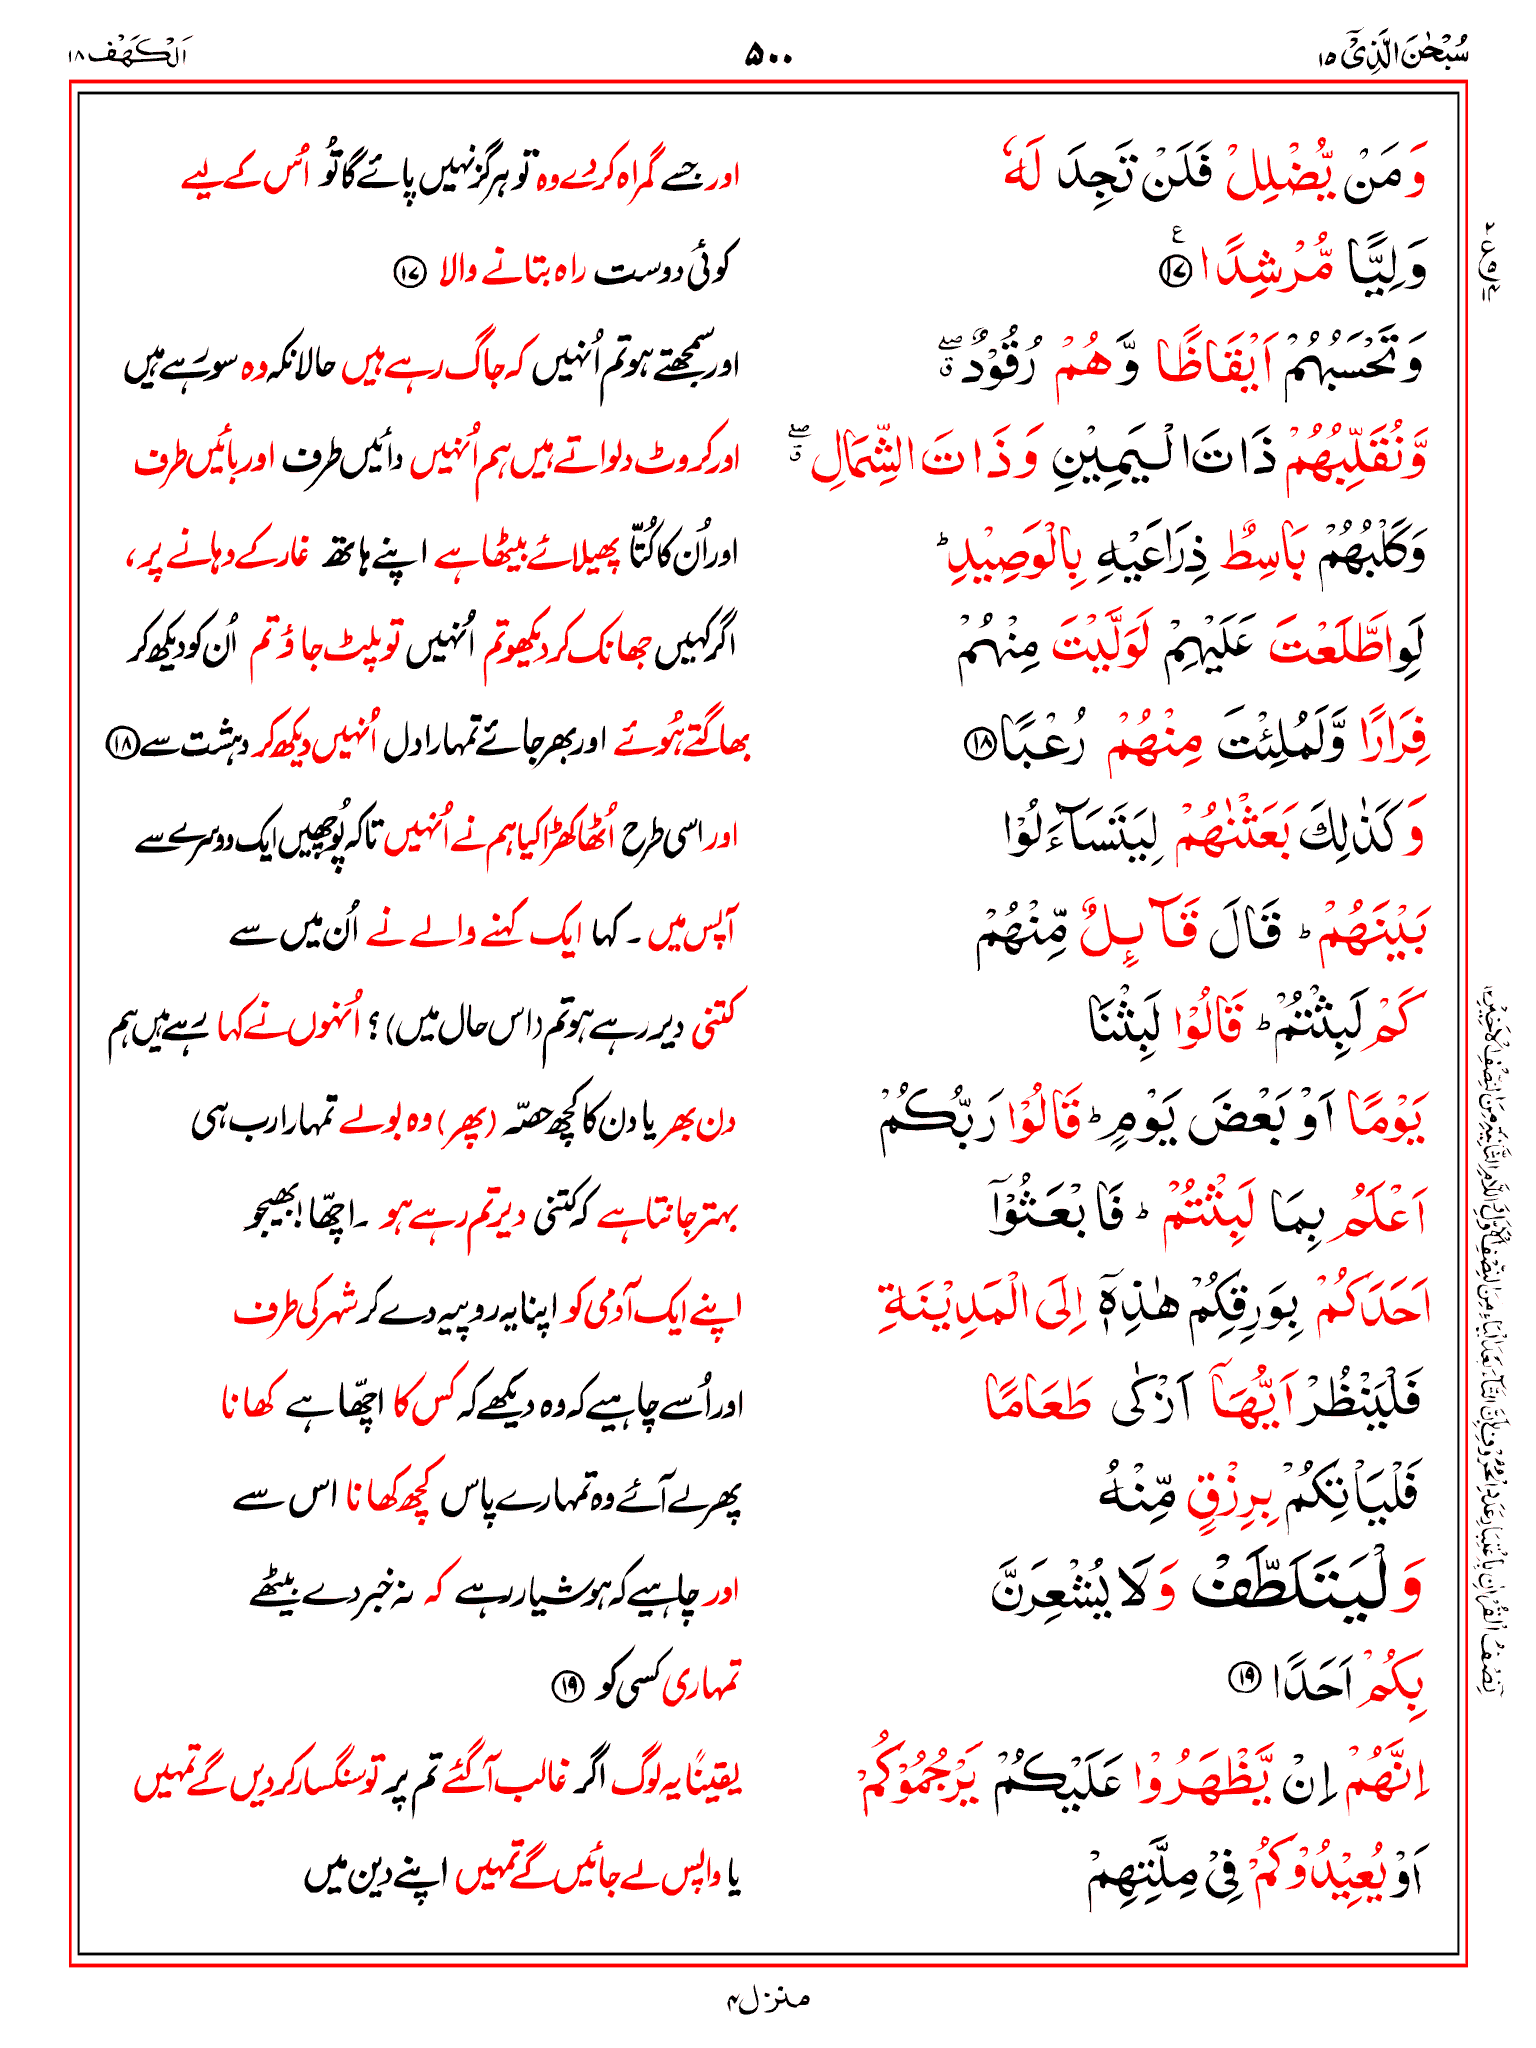 سُبْحٰنَ الَّذِیْۤ ۱۵
۵۰۰
اَلْکَهْف ۱۸
وَمَنْ یُّضْلِلْ فَلَنْ تَجِدَ لَهٗ
اور جسے گمراہ کردے وہ تو ہرگز نہیں پائے گا تُو اُس کے لیے
وَلِیًّا مُّرْشِدًا ۱۷ ع
کوئی دوست راہ بتانے والا ۱۷
وَتَحْسَبُهُمْ اَیْقَاظًا وَّهُمْ رُقُوْدٌ ۖۗ
اور سمجھتے ہو تم اُنہیں کہ جاگ رہے ہیں حالانکہ وہ سو رہے ہیں
وَّنُقَلِّبُهُمْ ذَاتَ الْیَمِیْنِ وَذَاتَ الشِّمَالِ ۖۗ
اور کروٹ دلواتے ہیں ہم اُنہیں دائیں طرف اور بائیں طرف
وَکَلْبُهُمْ بَاسِطٌ ذِرَاعَیْهِ بِالْوَصِیْدِ ؕ
اور اُن کا کُتّا پھیلائے بیٹھا ہے اپنے ہاتھ غار کے دہانے پر،
لَوِ اطَّلَعْتَ عَلَیْهِمْ لَوَلَّیْتَ مِنْهُمْ
اگر کہیں جھانک کر دیکھو تم اُنہیں تو پلٹ جاؤ تم اُن کو دیکھ کر
فِرَارًا وَّلَمُلِئْتَ مِنْهُمْ رُعْبًا ۱۸
بھاگتے ہُوئے اور بھر جائے تمہارا دل اُنہیں دیکھ کر دہشت سے ۱۸
وَکَذٰلِكَ بَعَثْنٰهُمْ لِیَتَسَآءَلُوْا
اور اسی طرح اُٹھا کھڑا کیا ہم نے اُنہیں تاکہ پُوچھیں ایک دوسرے سے
بَیْنَهُمْ ؕ قَالَ قَآئِلٌ مِّنْهُمْ
آپس میں ۔ کہا ایک کہنے والے نے اُن میں سے
کَمْ لَبِثْتُمْ ؕ قَالُوْا لَبِثْنَا
کتنی دیر رہے ہو تم (اس حال میں) ؟ اُنہوں نے کہا رہے ہیں ہم
یَوْمًا اَوْ بَعْضَ یَوْمٍ ؕ قَالُوْا رَبُّکُمْ
دن بھر یا دن کا کچھ حصّہ (پھر) وہ بولے تمہارا رب ہی
اَعْلَمُ بِمَا لَبِثْتُمْ ؕ فَابْعَثُوْۤا
بہتر جانتا ہے کہ کتنی دیر تم رہے ہو ۔ اچھّا! بھیجو
اَحَدَکُمْ بِوَرِقِکُمْ هٰذِهٖۤ اِلَی الْمَدِیْنَةِ
اپنے ایک آدمی کو اپنا یہ روپیہ دے کر شہر کی طرف
فَلْیَنْظُرْ اَیُّهَاۤ اَزْکٰی طَعَامًا
اور اُسے چاہیے کہ وہ دیکھے کہ کس کا اچھّا ہے کھانا
فَلْیَاْتِکُمْ بِرِزْقٍ مِّنْهُ
پھر لے آئے وہ تمہارے پاس کچھ کھانا اس سے
وَلْیَتَلَطَّفْ وَلَا یُشْعِرَنَّ
اور چاہیے کہ ہوشیار رہے کہ نہ خبر دے بیٹھے
بِکُمْ اَحَدًا ۱۹
تمہاری کسی کو ۱۹
اِنَّهُمْ اِنْ یَّظْهَرُوْا عَلَیْکُمْ یَرْجُمُوْکُمْ
یقینًا یہ لوگ اگر غالب آگئے تم پر تو سنگسار کردیں گے تمہیں
اَوْ یُعِیْدُوْکُمْ فِیْ مِلَّتِهِمْ
یا واپس لے جائیں گے تمہیں اپنے دین میں
منزل ۴